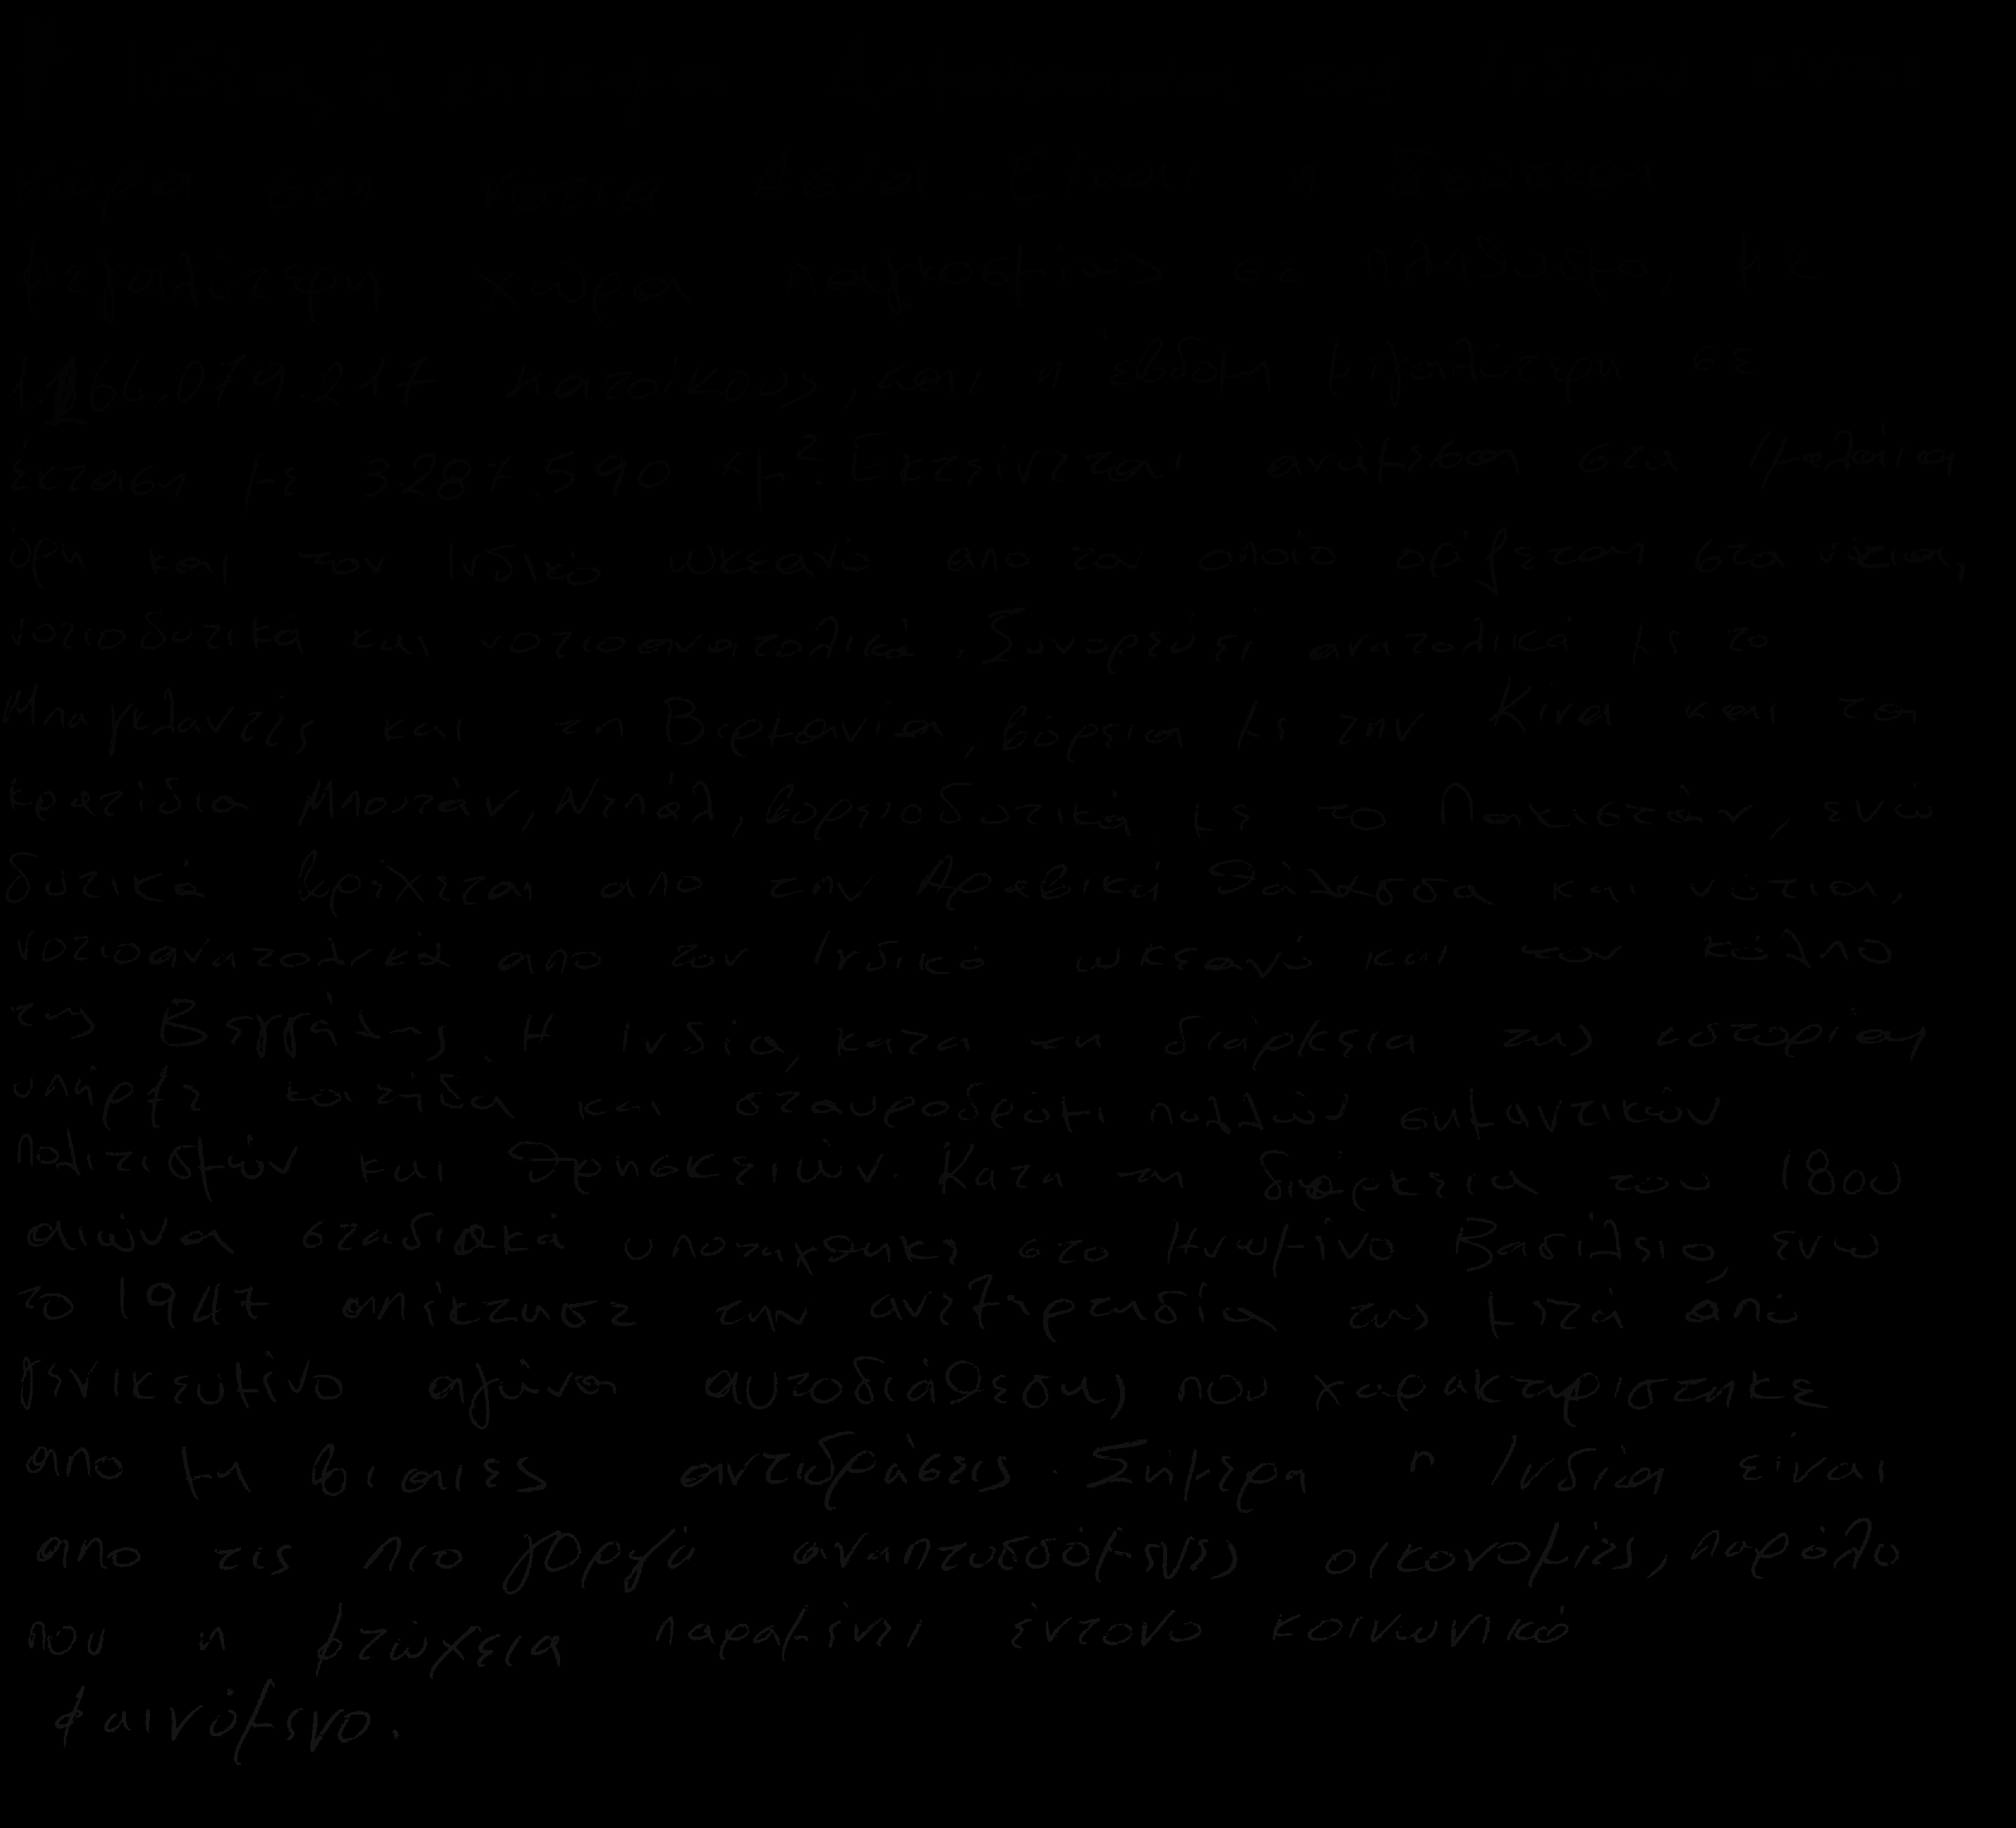 χώρα στη νοτια Ασια Είναι η δευτερη
μεγαλύτερη χώρα παγκοσμίως σε πληθυσμο, με
1.166.079.217 κατοίκους, και η έβδομη μεγαλύτερη σε
έκταση με 3.287.590 χμ². Εκτείνεται ανάμεσα στα Ιμαλάια
όρη και τον Ινδικό ωκεανό απο τον οποίο ορίζεται στα νότια,
νοτιοδυτικά και νοτιοανατολικά. Συνορεύει ανατολικά με το
Μπαγκλαντές και τη Βιρμανία, βόρεια με την Κίνα και τα
κρατίδια Μπουτάν, Νεπάλ, βορειοδυτικά με το Πακιστάν, ενώ
δυτικά βρέχεται απο την Αραβική θάλασσα και νότια,
νοτιοανατολικά απο τον Ινδικό ωκεανό και τον κόλπο
της Βεγγάλης. Η Ινδία, κατα τη διάρκεια της ιστορίας
υπήρξε κοιτίδα και σταυροδρόμι πολλών σημαντικών
πολιτισμών και θρησκειών. Κατα τη διάρκεια του 18ου
αιώνα σταδιακά υποταχθηκε στο Ηνωμένο Βασίλειο, ενω
το 1947 απέκτησε την ανεξαρτησία της μετά από
γενικευμένο αγώνα αυτοδιάθεσης που χαρακτηριστηκε
απο μη βιαιες αντιδράσεις. Σήμερα η Ινδία είναι
απο τις πιο γοργά αναπτυσσόμενες οικονομίες, παρόλο
που η φτώχεια παραμένει έντονο κοινωνικό
φαινόμενο.